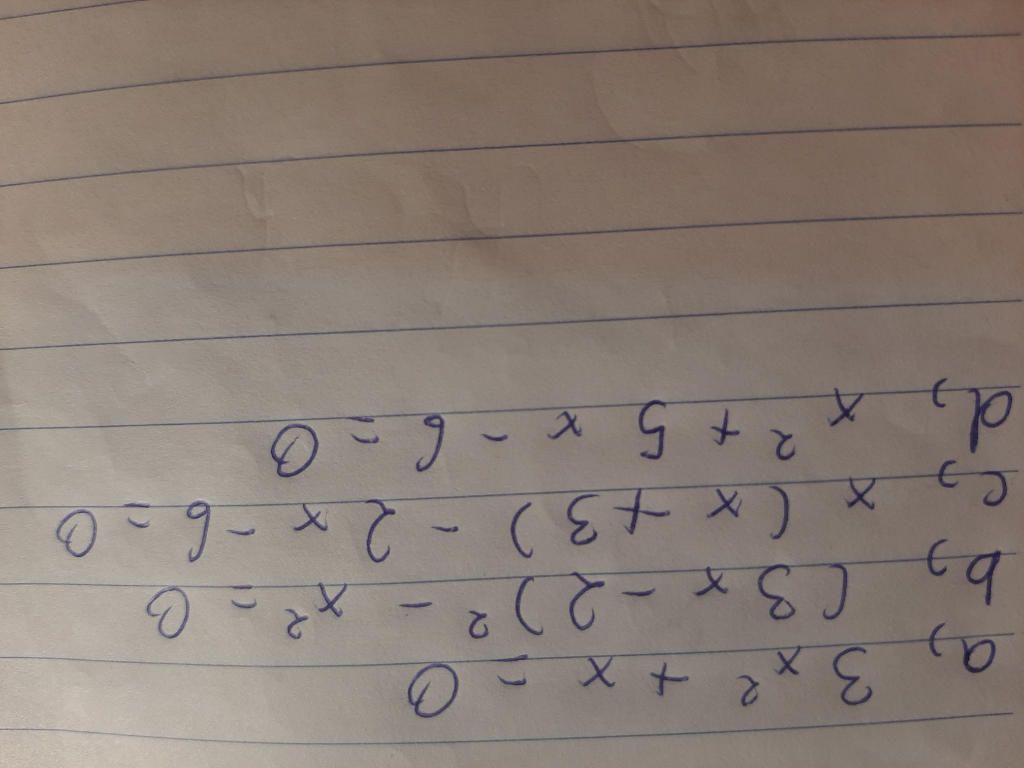 a, 3x² + x = 0
b, (3x - 2)² - x² = 0
c, x (x + 3) - 2x - 6 = 0
d, x² + 5x - 6 = 0